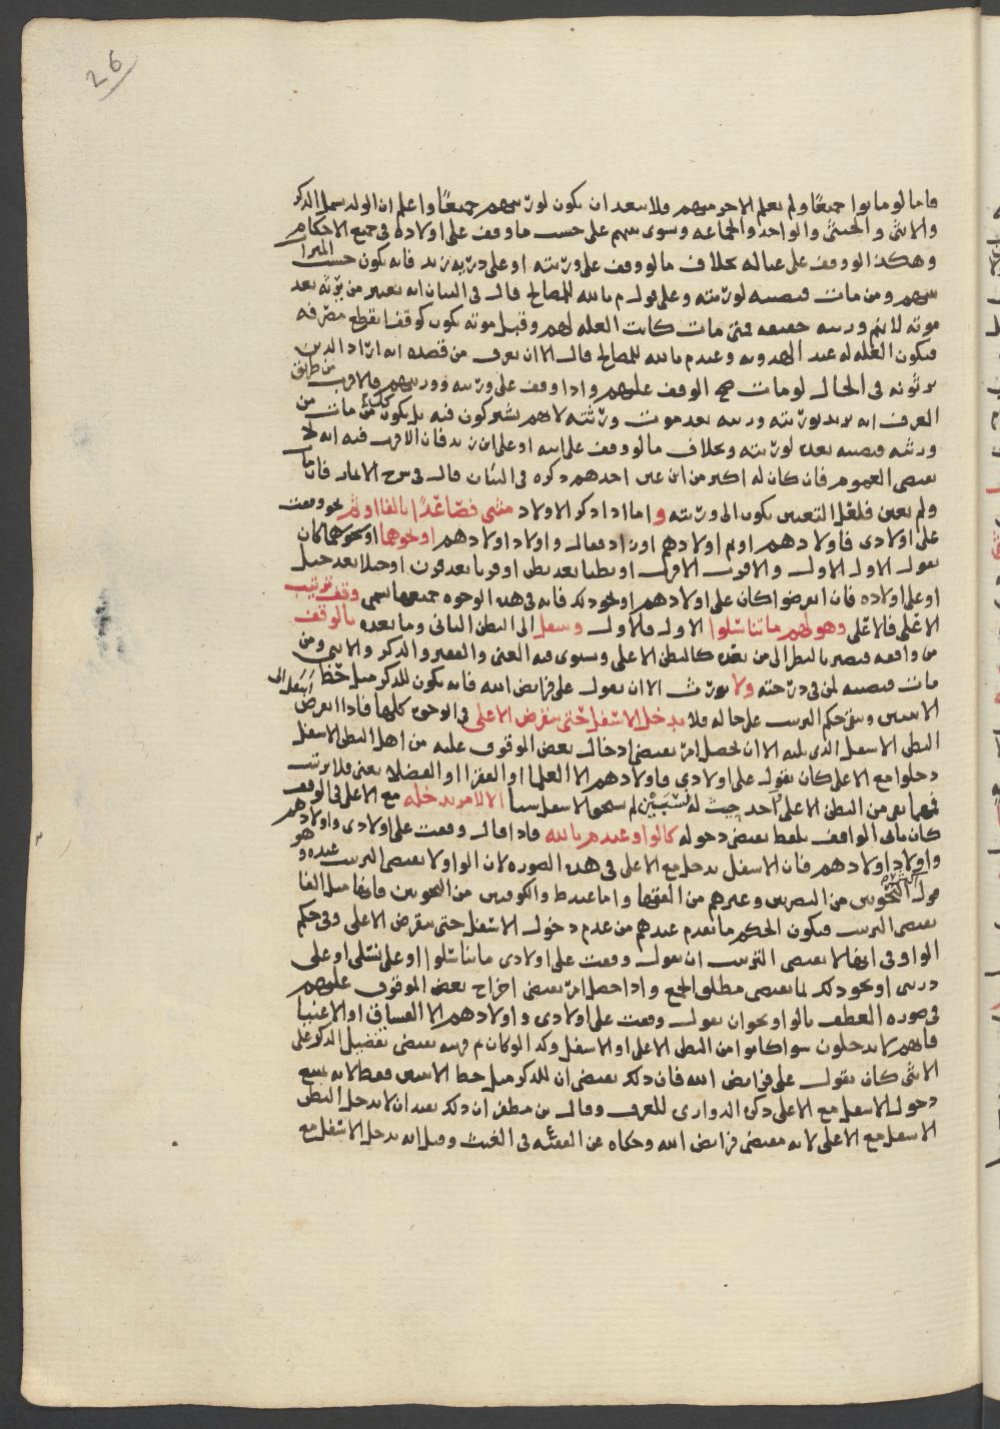 26
فاما لو ماتوا جميعًا ولم يعلم الاخر منهم فلا يبعد ان يكون لورثتهم جميعًا واعلم ان الولد يشمل الذكر
والانثى والخنثى والواحد والجماعه وسوى بينهم على حسب ما وقف على اولاده في جميع الاحكام
وهكذا لو وقف على عياله بخلاف ما لو وقف على ورثته او على ذريه زيد فانه يكون حسب الميرا
بينهم ومن مات فنصيبه لورثته وعلى قول م بالله للمصالح قال في البيان انه يعتبر من يرثه بعد
موته لانهم ورثته حقيقه فمتى مات كانت الغله لهم وقبل موته يكون كوقف انقطع مصرفه
فيكون الغله له عند الهدويه وعند م بالله للمصالح قال الا ان يعرف من قصده انه اراد الذين
يرثونه في الحال لو مات صح الوقف عليهم واذا وقف على ورثته وورثتهم فالاقرب من طريق
العرف انه يريد بورثته ورثته بعد موت ورثته لانهم يشتركون فيه بل يكون كل من مات من
ورثته فنصيبه بعده لورثته وبخلاف ما لو وقف على ابنه او على ابن زيد فان الاقرب فيه انه لا
يقتضي العموم فان كان له اكثر من ابن عين احدهم ذكره في البيان قال في شرح الاثمار فان مات
ولم يعين فلعل التعيين يكون الى ورثته واما اذا ذكر الاولاد مثنى فصاعدًا بالفا او ثم نحو وقفت
على اولادي فاولادهم او ثم اولادهم او زاد فقال واولاد اولادهم او نحوهما او نحوهما كان
يقول الاول الاول والاقرب الاقرب او بطنا بعد بطن او قرنا بعد قرن او جيلا بعد جيل
او على اولاده فان انقرضوا كان على اولادهم او نحو ذلك فانه في هذه الوجوه جميعها يسمى وقف ترتيب
الاعلى فالاعلى وهو لهم ما تناسلوا الاول فالاول وينتقل الى البطن الثاني وما بعده بالوقف
من واقفه فيصير بالبطن الى من بعده كالبطن الاعلى ويستوي فيه الغني والفقير والذكر والانثى ومن
مات فنصيبه لمن في درجته ولا يورث الا ان يقول على فرايض الله فانه يكون للذكر مثل حظ
الانثيين وبقى حكم الترتيب على حاله فلا يدخل الاسفل حتى ينقرض الاعلى في الوجوه كلها فاذا انقرض انتقل الى
البطن الاسفل الذي يليه الا ان يحصل امر يقتضي ادخال بعض الموقوف عليه من اهل البطن الاسفل
دخلوا مع الاعلى كان يقول على اولادي فاولادهم الا العلما او الفقرا او الفضلا يعني فلا ترتيب
فمهما بقي من البطن الاعلى احد لم يستحق الاسفل شيا الا لامر يدخله مع الاعلى في الوقف
كان ياتي الواقف بلفظ يقتضي دخوله كالواو عند م بالله فاذا قال وقفت على اولادي واولادهم
واولاد اولادهم فان الاسفل يدخل مع الاعلى في هذه الصوره لان الواو لا يقتضي الترتيب عنده وهو
قول النحويين من البصريين وغيرهم من الفقها واما عند ط والكوفيين من النحويين فانها مثل الفا
يقتضي الترتيب فيكون الحكم ما تقدم عندهم من عدم دخول الاسفل حتى ينقرض الاعلى وفي حكم
الواو في انها لا يقتضي الترتيب ان يقول وقفت على اولادي ما تناسلوا او على نسلي او على
ذريتي او نحو ذلك لما يقتضي مطلق الجمع واذا حصل امر يقتضي اخراج بعض الموقوف عليهم
في صوره العطف بالواو نحو ان يقول وقفت على اولادي واولادهم الا الفساق او الاغنيا
فانهم لا يدخلون سوا كانوا من البطن الاعلى او الاسفل وكذا لو كان ثم قرينه يقتضي تفضيل الذكر على
الانثى كان يقول على فرايض الله فان ذلك يقتضي ان للذكر مثل حظ الانثيين فقط لا انه يمنع
دخول الاسفل مع الاعلى ذكره الدواري للعرف وقال بن مظفر ان ذلك يفيد ان لا يدخل البطن
الاسفل مع الاعلى لانه مقتضى فرايض الله وحكاه عن الفقيه ع في الغيث وقيل انه يدخل الاسفل مع